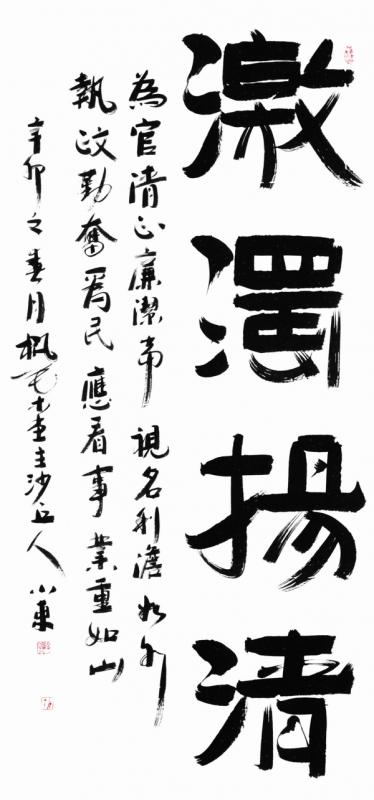 激濁揚清
為官清正廉潔常視名利澹如水
執政勤奮爲民應看事業重如山
辛卯之春月楓堂主沙丘人小東